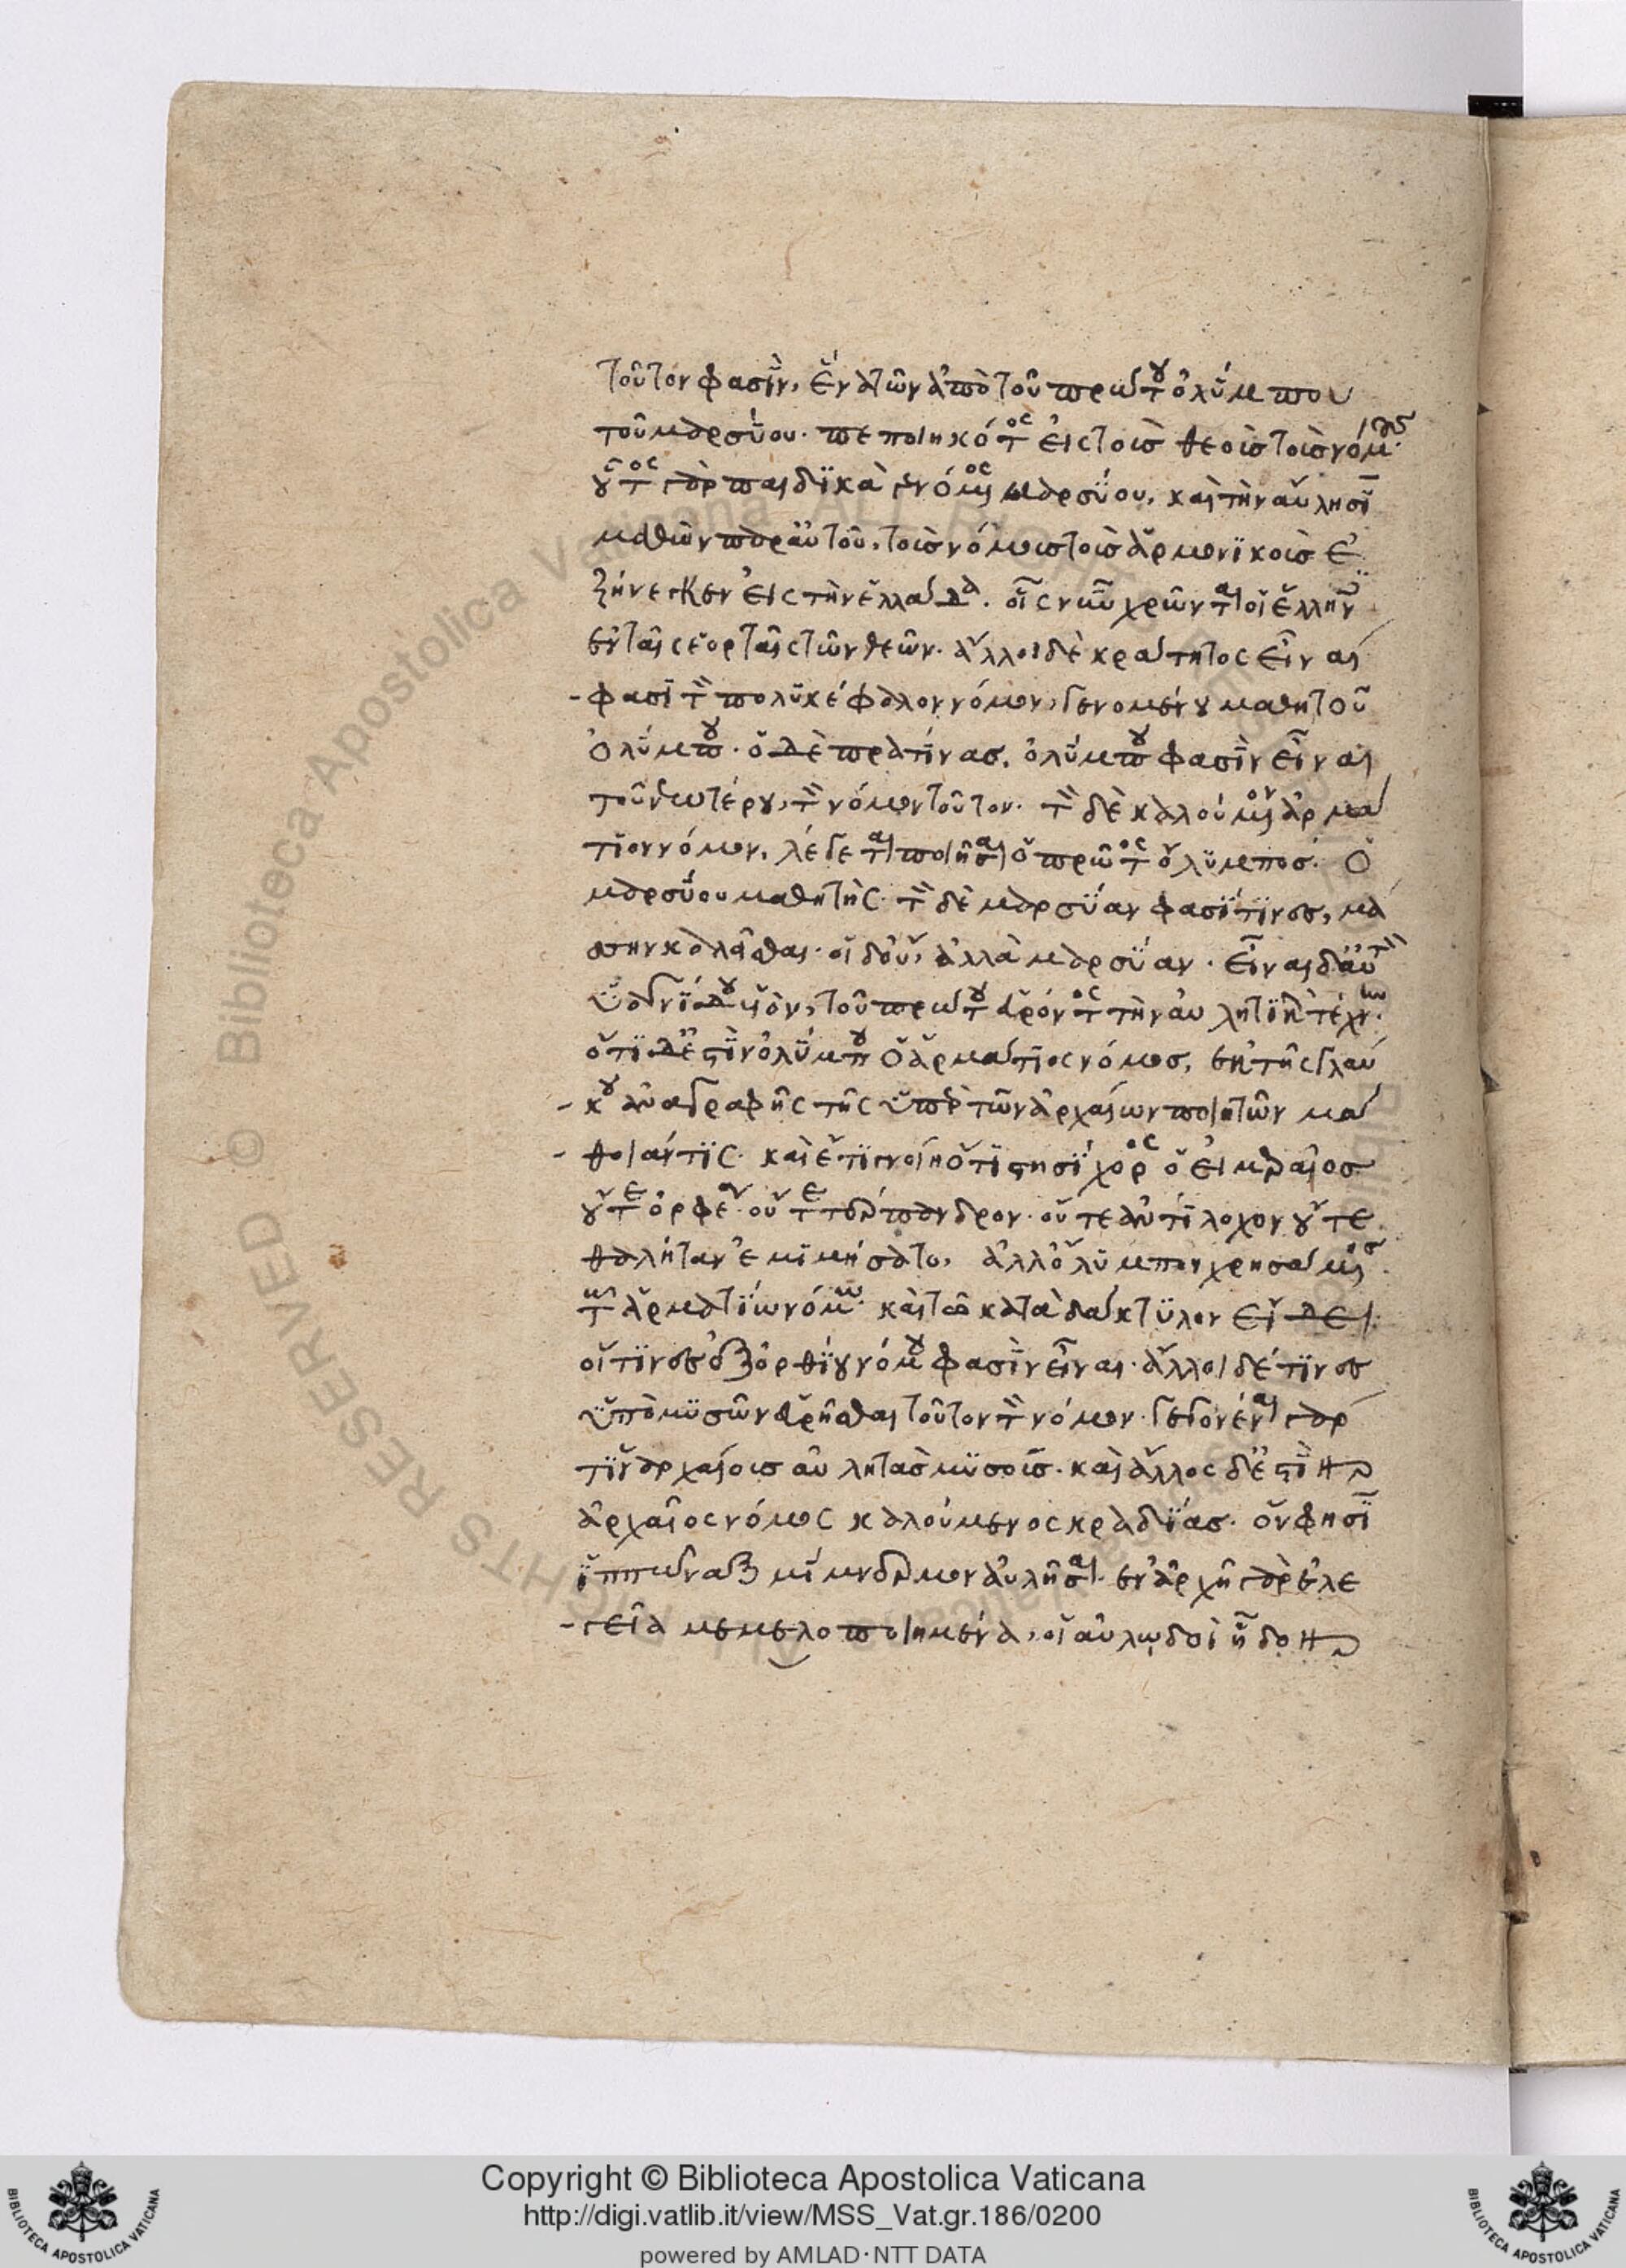 τοῦτον φασὶν, ἕνα τῶν ἀπὸ τοῦ πρώτου ὀλύμπου
τοῦ μαρσύου. πεποιηκότος εἰς τοὺς θεοὺς τοὺς νόμους.
οὗτος γὰρ παιδικὰ γενόμενος μαρσύου, καὶ τὴν αὔλησιν
μαθὼν παρ' αὐτοῦ, τοὺς νόμους τοὺς ἁρμονικοὺς ἐ
ξήνεγκεν εἰς τὴν ἑλλάδα. οἷς νῦν χρῶνται οἱ ἕλληνες
ἐν ταῖς ἑορταῖς τῶν θεῶν. ἄλλοι δὲ κράτητος εἶναι
φασὶ τὸν πολυκέφαλον νόμον, γενομένου μαθητοῦ
ὀλύμπου. ὁ δὲ πρατίνας, ὀλύμπου φασὶν εἶναι
τοῦ νεωτέρου, τὸν νόμον τοῦτον. τὸν δὲ καλούμενον ἁρμά
τιον νόμον, λέγεται ποιῆσαι ὁ πρῶτος ὄλυμπος. ὁ
μαρσύου μαθητής. τὸν δὲ μαρσύαν φασί τινες, μά
σσην καλεῖσθαι. οἱ δ' οὔ, ἀλλὰ μαρσύαν. εἶναι δ' αὐτὸν
ὑάγνιδος υἱὸν, τοῦ πρώτου εὑρόντος τὴν αὐλητικὴν τέχνην.
ὅτι δέ ἐστιν ὀλύμπου ὁ ἁρμάτιος νόμος, ἐκ τῆς γλαύ
κου ἀναγραφῆς τῆς ὑπὲρ τῶν ἀρχαίων ποιητῶν μά
θοι ἄν τις. καὶ ἔτι γνοίη ὅτι στησίχορος ὁ ἱμεραῖος
οὔτε ὀρφέα οὔτε τέρπανδρον. οὔτε ἀντίλοχον οὔτε
θαλήταν ἐμιμήσατο, ἀλλ' ὄλυμπον χρησάμενος
τῷ ἁρματίῳ νόμῳ. καὶ τῶ κατὰ δάκτυλον εἴδει.
οἵ τινες ἐξ ὀρθίου νόμου φασὶν εἶναι. ἄλλοι δέ τινες
ὑπὸ μυσῶν εὑρῆσθαι τοῦτον τὸν νόμον. γεγονέναι γάρ
τινας ἀρχαίους αὐλητὰς μυσούς. καὶ ἄλλος δέ ἐστιν
ἀρχαῖος νόμος καλούμενος κραδίας. ὅν φησιν
ἱππώναξ μίμνερμον αὐλῆσαι. ἐν ἀρχῇ γὰρ ἐλε
γεῖα μεμελοποιημένα, οἱ αὐλῳδοὶ ᾖδον
Copyright © Biblioteca Apostolica Vaticana
http://digi.vatlib.it/view/MSS_Vat.gr.186/0200
powered by AMLAD·NTT DATA